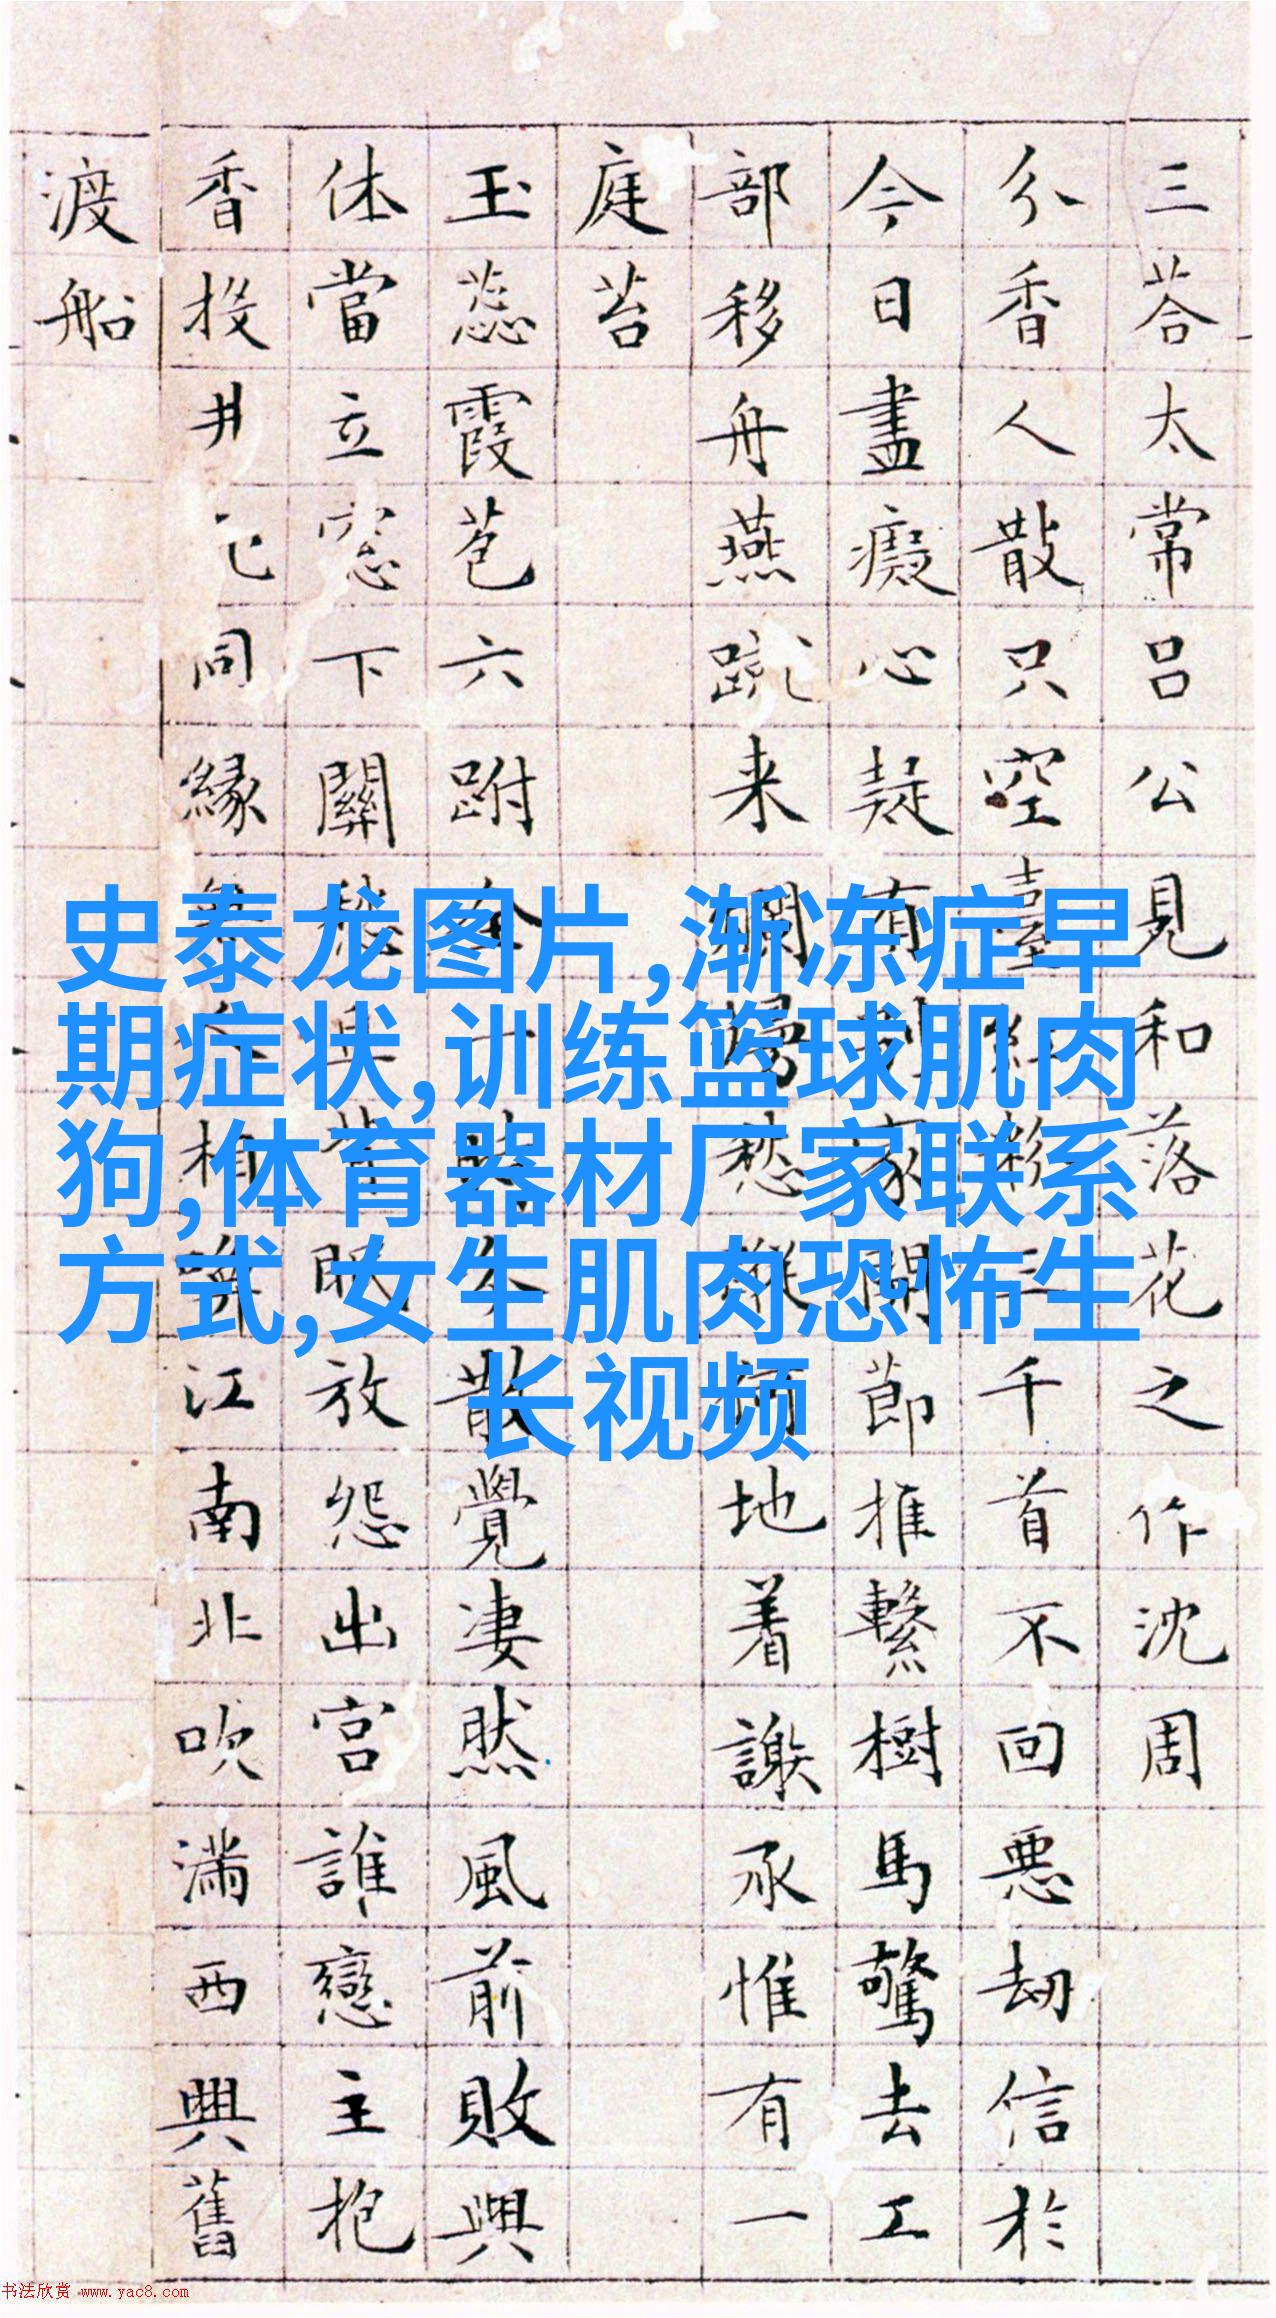 三荅太常吕公見和落花之作沈周
分香人散只空臺紅粉三千首不回惡劫信於
今日盡癡心疑有別家開節推繫樹馬驚去工
部移舟燕蹴来爛愁難地着謝承惟有一
庭苔
玉蕊霞苞六跗全一散覺凄然風前敗興
休當立窓下關愁且背眠放怨出宫誰戀主抱
香投井同緣相江南北吹滿西興舊
渡船
史泰龙图片,渐冻症早
期症状,训练篮球肌肉
狗,体育器材厂家联系
方式,女生肌肉恐怖生
长视频
书法欣赏 www.yac8.com